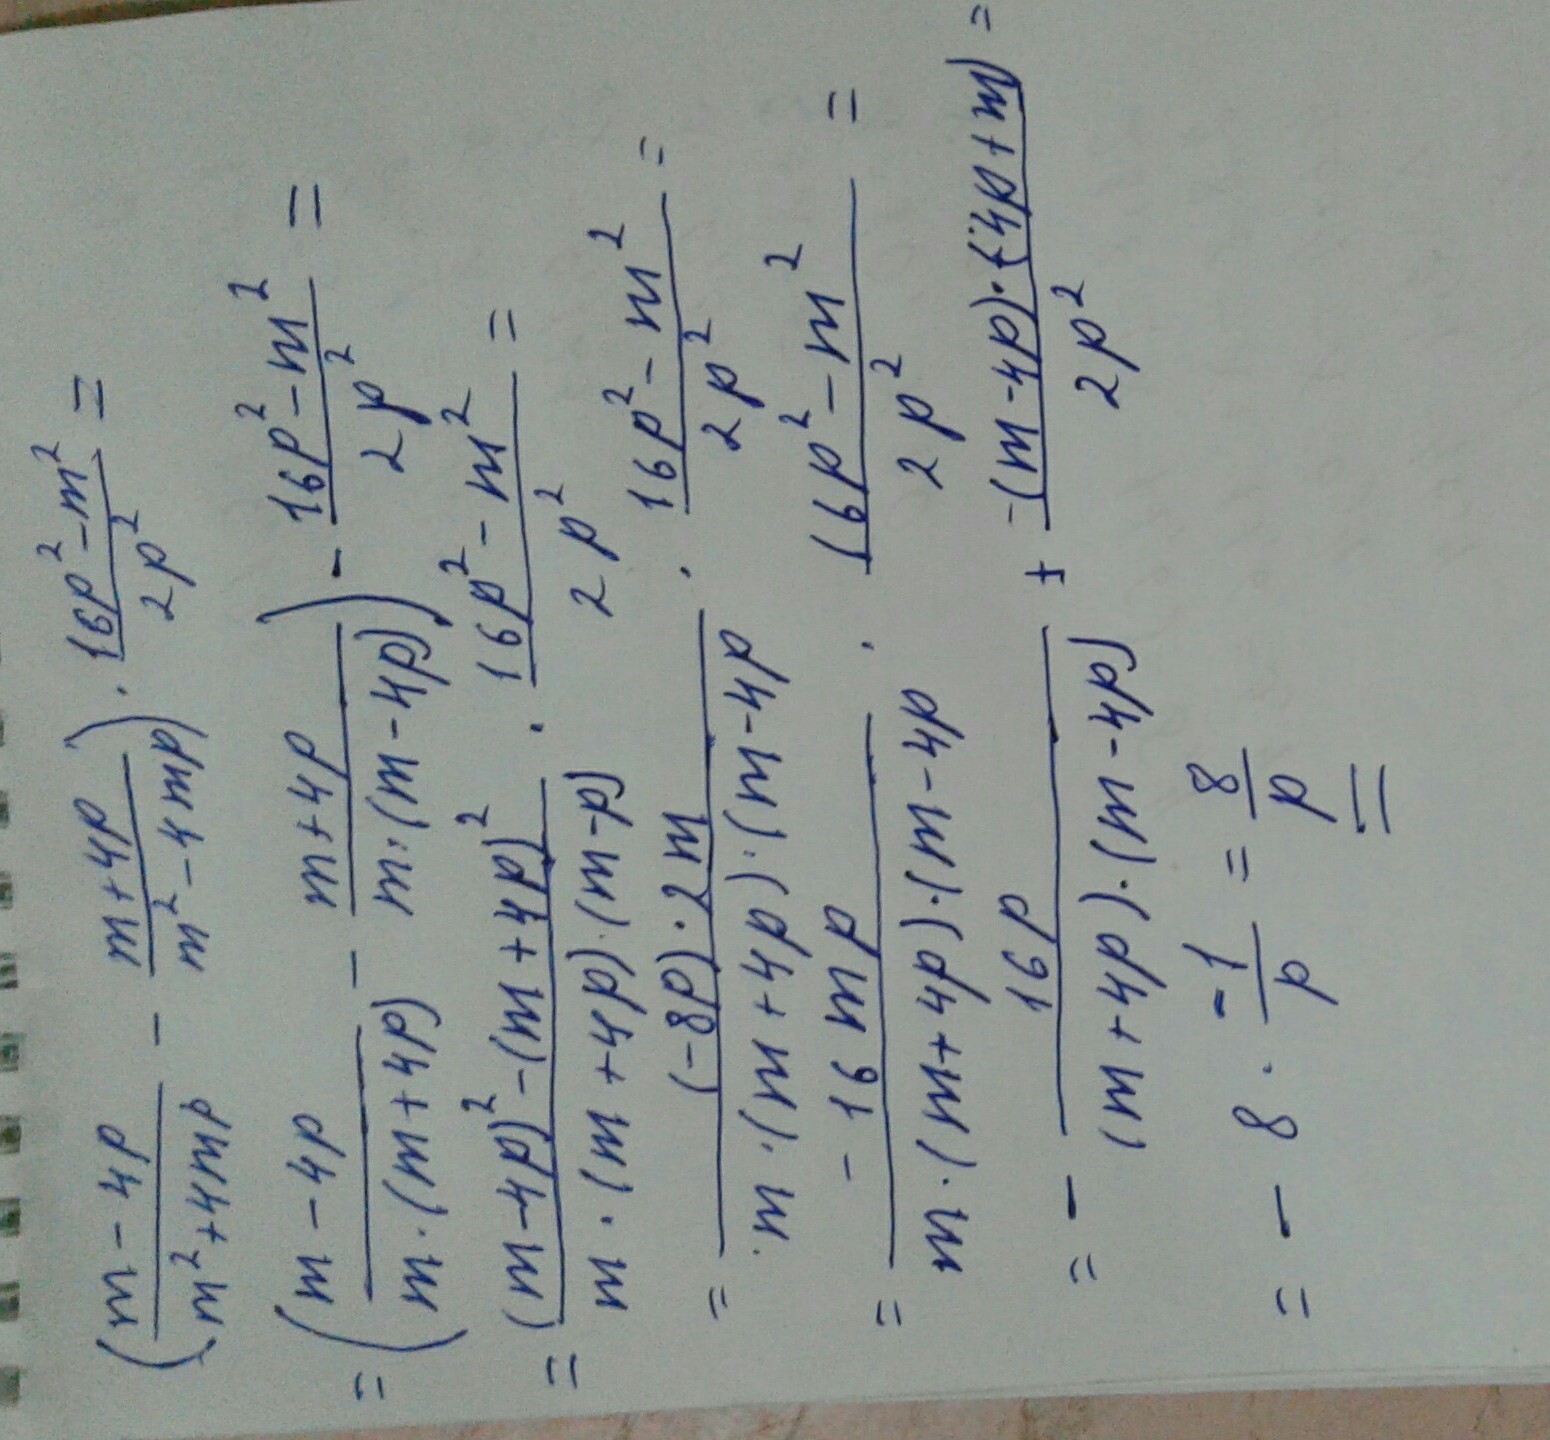 (m - 4p / m² + 4mp - m + 4p / m² - 4mp) · 16p² - m² / 2p² =
= (m - 4p / m·(m + 4p) - m + 4p / m·(m - 4p)) - 16p² - m² / 2p² =
= (m - 4p)² - (m + 4p)² / m · (m + 4p)·(m - p) · 16p² - m² / 2p² =
= (-8p)·2m / m·(m + 4p)·(m - 4p · 16p² - m² / 2p² =
= - 16mp / m·(m + 4p)·(m - 4p · 16p² - m² / 2p² =
= - 16p / (m + 4p)·(m - 4p) + -(m - 4p)·(4p + m) / 2p² =
= - 8 · -1 / p = 8 / p